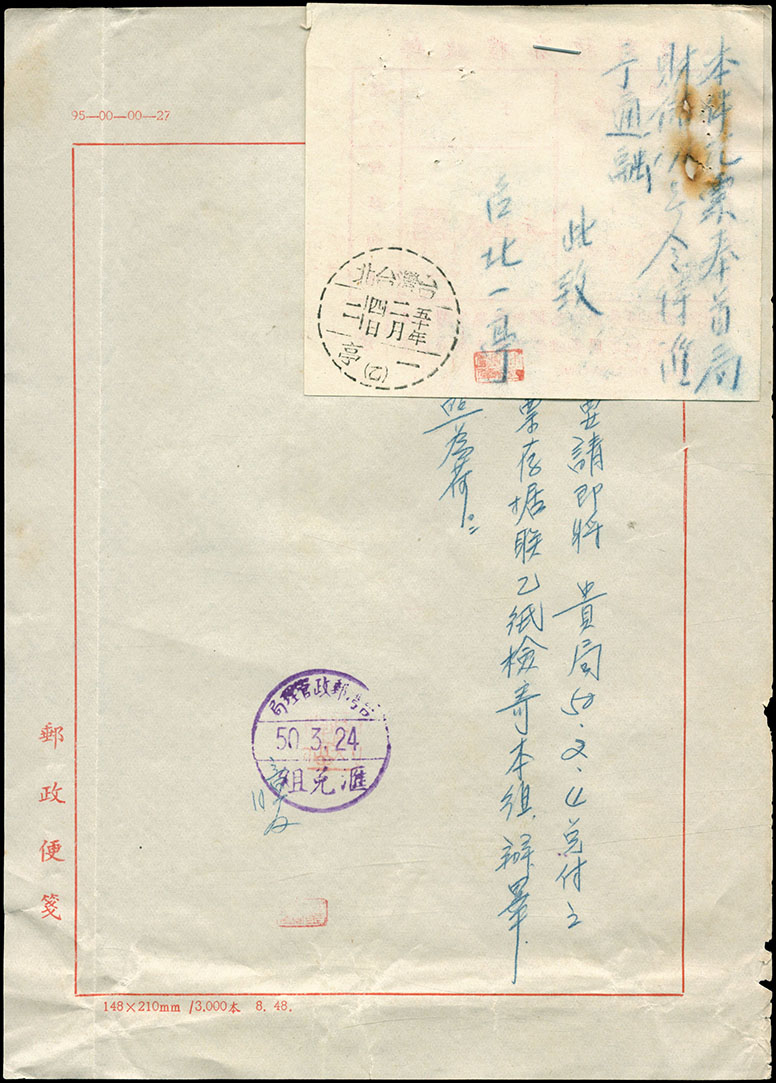 95—00—00—27
本件汇票奉首局
財儲 令特准
予通融
此致
台北一亭
台灣台北
五十年
二月
四日
二一
一亭
(乙)
要請即將 貴局50.2.4兌付之
票存据联乙紙檢寄本組,辦畢
照為荷.
台灣郵政管理局
50.3.24
滙兌組
郵政便箋
148×210mm /3,000本 8. 48.